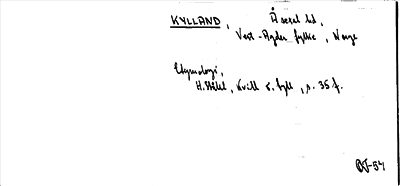 KYLLAND, Åseral hd,
Vest-Agder fylke, Norge
Etymologi,
H. Ståhl, Kvill o. tyll, s. 35 f.
-54